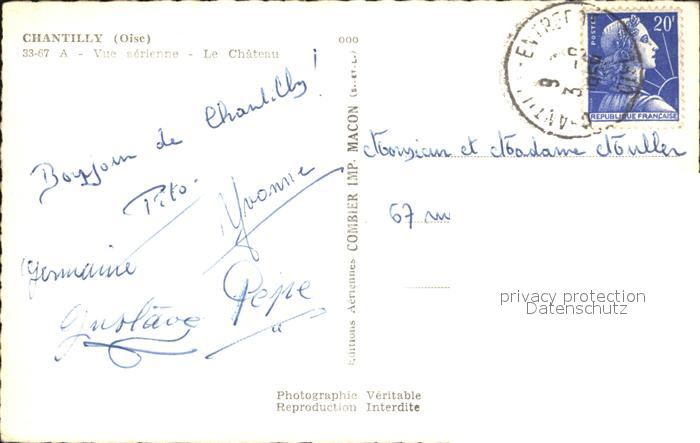 CHANTILLY (Oise)
33-67 A - Vue aérienne - Le Château
000
Bonjour de Chantilly!
Pito.
Yvonne
Germaine
Gustave
Pépé
Editions Aériennes COMBIER IMP. MACON
POSTES
20F
REPUBLIQUE FRANÇAISE
Monsieur et Madame Muller
67 
privacy protection
Datenschutz
Photographie Véritable
Reproduction Interdite